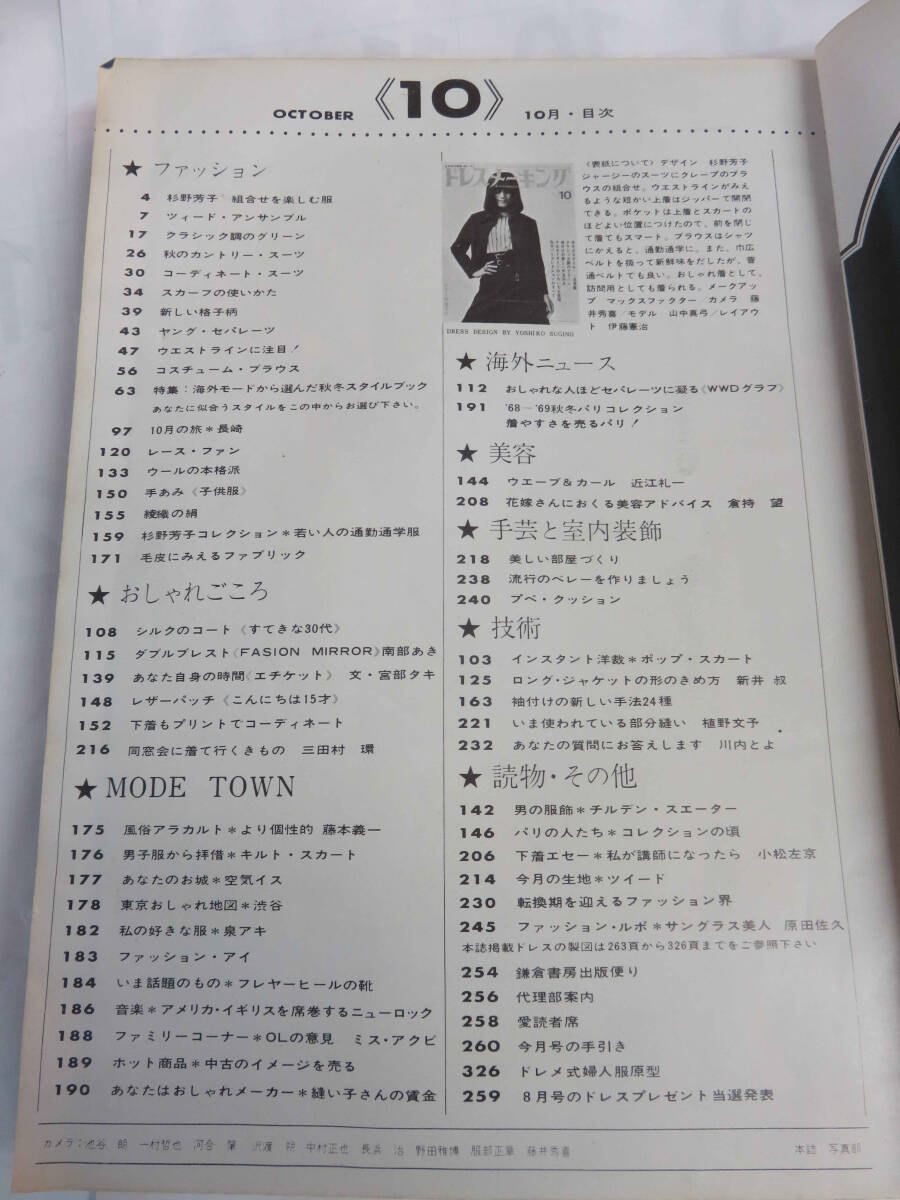 OCTOBER 《10》 10月・目次
★ ファッション
4 杉野芳子 組合せを楽しむ服
7 ツィード・アンサンブル
17 クラシック調のグリーン
26 秋のカントリー・スーツ
30 コーディネート・スーツ
34 スカーフの使いかた
39 新しい格子柄
43 ヤング・セパレーツ
47 ウエストラインに注目！
56 コスチューム・ブラウス
63 特集：海外モードから選んだ秋冬スタイルブック
あなたに似合うスタイルをこの中からお選び下さい。
97 10月の旅＊長崎
120 レース・ファン
133 ウールの本格派
150 手あみ《子供服》
155 綾織の絹
159 杉野芳子コレクション＊若い人の通勤通学服
171 毛皮にみえるファブリック
★ おしゃれごころ
108 シルクのコート《すてきな30代》
115 ダブルブレスト《FASION MIRROR》南部あき
139 あなた自身の時間《エチケット》 文・宮部タキ
148 レザーパッチ《こんにちは15才》
152 下着もプリントでコーディネート
216 同窓会に着て行くきもの 三田村 環
★ MODE TOWN
175 風俗アラカルト＊より個性的 藤本義一
176 男子服から拝借＊キルト・スカート
177 あなたのお城＊空気イス
178 東京おしゃれ地図＊渋谷
182 私の好きな服＊泉アキ
183 ファッション・アイ
184 いま話題のもの＊フレヤーヒールの靴
186 音楽＊アメリカ・イギリスを席巻するニューロック
188 ファミリーコーナー＊OLの意見 ミス・アクビ
189 ホット商品＊中古のイメージを売る
190 あなたはおしゃれメーカー＊縫い子さんの賃金
ドレスメーキング
10
DRESS DESIGN BY YOSHIKO SUGINO
《表紙について》デザイン 杉野芳子
ジャージーのスーツにクレープのブラ
ウスの組合せ。ウエストラインがみえ
るような短かい上着はジッパーで開閉
できる。ポケットは上着とスカートの
ほどよい位置につけたので、前を閉じ
て着てもスマート。ブラウスはシャツ
にかえると、通勤通学に。また、巾広
ベルトを扱って新鮮味をだしたが、普
通ベルトでも良い。おしゃれ着として、
訪問用としても着られる。メークアッ
プ マックスファクター／カメラ 藤
井秀喜／モデル 山中真弓／レイアウ
ト 伊藤憲治
★ 海外ニュース
112 おしゃれな人ほどセパレーツに凝る《WWDグラフ》
191 '68－'69秋冬パリコレクション
着やすさを売るパリ！
★ 美容
144 ウエーブ＆カール 近江礼一
208 花嫁さんにおくる美容アドバイス 倉持 望
★ 手芸と室内装飾
218 美しい部屋づくり
238 流行のベレーを作りましょう
240 プペ・クッション
★ 技術
103 インスタント洋裁＊ポップ・スカート
125 ロング・ジャケットの形のきめ方 新井 叔
163 袖付けの新しい手法24種
221 いま使われている部分縫い 植野文子
232 あなたの質問にお答えします 川内とよ
★ 読物・その他
142 男の服飾＊チルデン・スエーター
146 パリの人たち＊コレクションの頃
206 下着エセー＊私が講師になったら 小松左京
214 今月の生地＊ツイード
230 転換期を迎えるファッション界
245 ファッション・ルポ＊サングラス美人 原田佐久
本誌掲載ドレスの製図は263頁から326頁までをご参照下さい
254 鎌倉書房出版便り
256 代理部案内
258 愛読者席
260 今月号の手引き
326 ドレメ式婦人服原型
259 8月号のドレスプレゼント当選発表
カメラ：池谷 朗 一村哲也 河合 肇 沢渡 朔 中村正也 長浜 治 野田雅博 服部正章 藤井秀喜 本誌 写真部